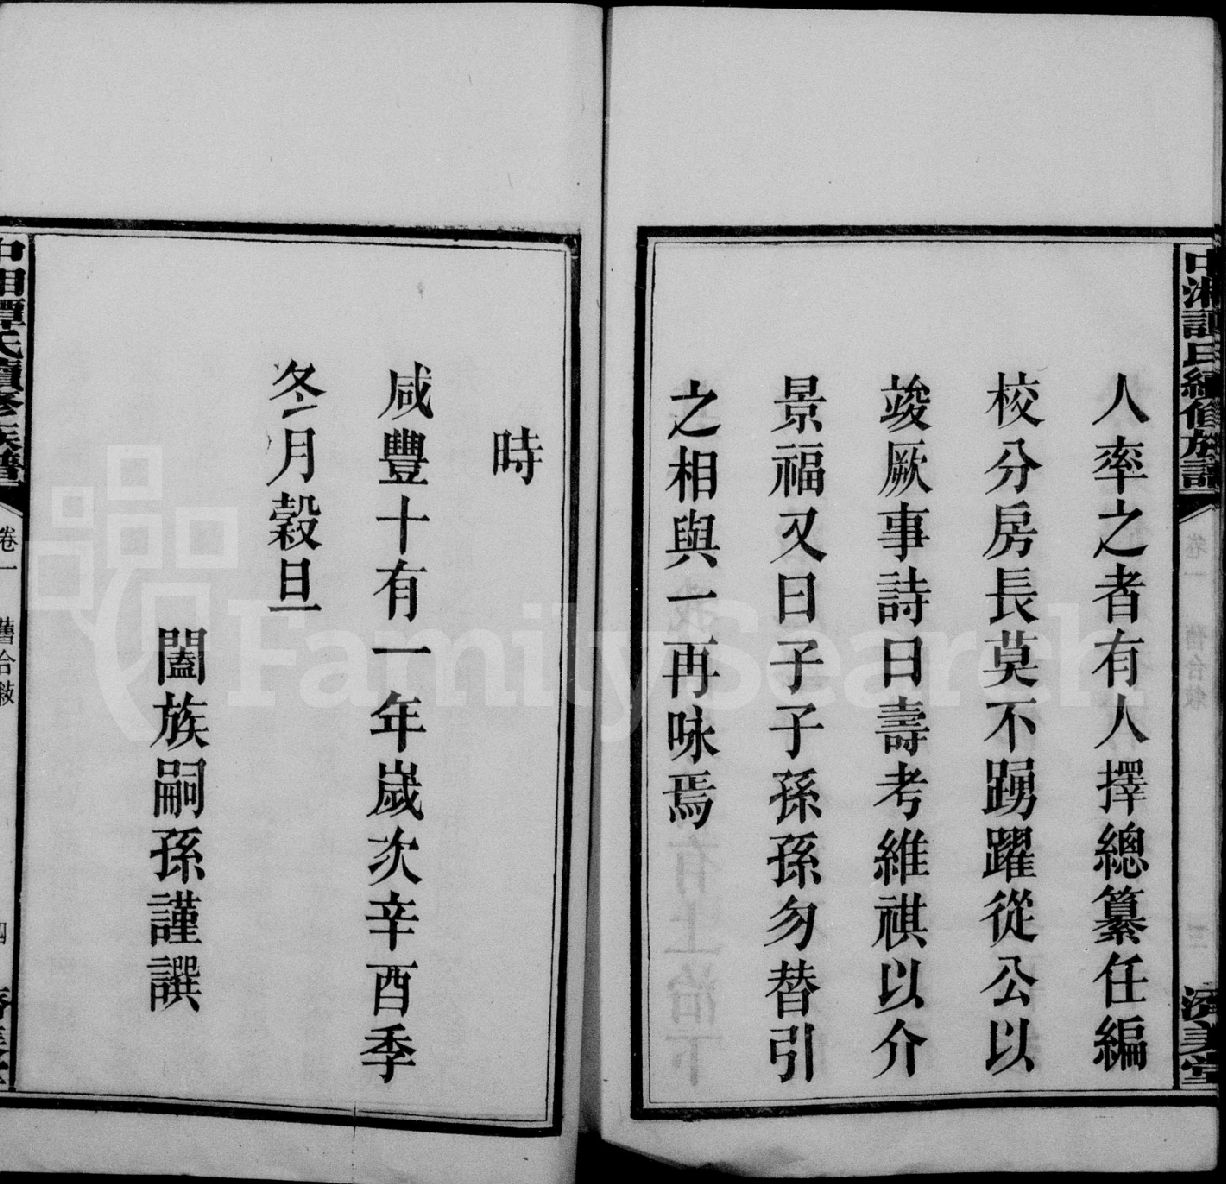 中湘譚氏續修族譜
卷一
舊合敘
三
濟美堂
人率之者有人擇總纂任編
校分房長莫不踴躍從公以
竣厥事詩曰壽考維祺以介
景福又曰子子孫孫勿替引
之相與一再咏焉
時
咸豐十有一年歲次辛酉季
冬月穀旦
闔族嗣孫謹譔
中湘譚氏續修族譜
卷一
舊合敘
四
濟美堂
FamilySearch